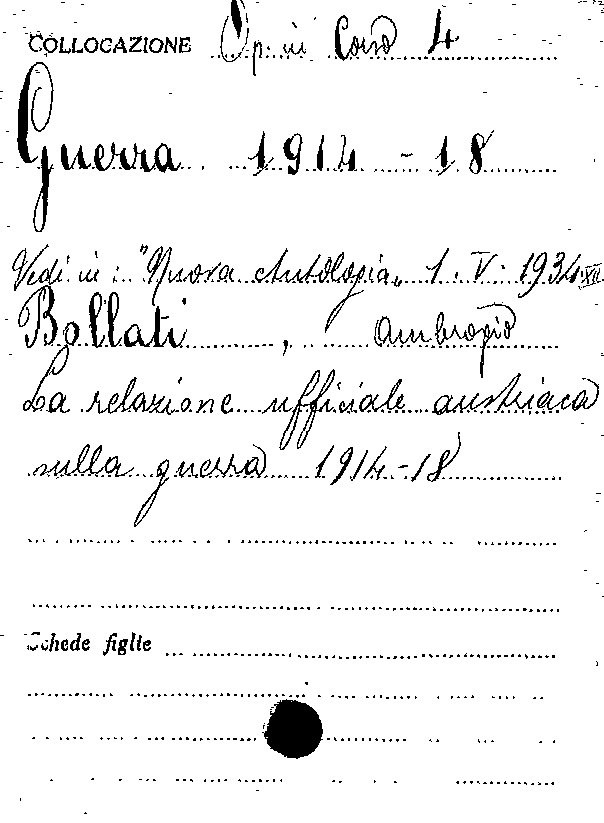 COLLOCAZIONE Op. in Corso 4
Guerra 1914 - 18
Vedi in: "Nuova Antologia„ 1. V. 1934 XII
Bollati, Ambrogio
La relazione ufficiale austriaca
sulla guerra 1914-18
Schede figlie